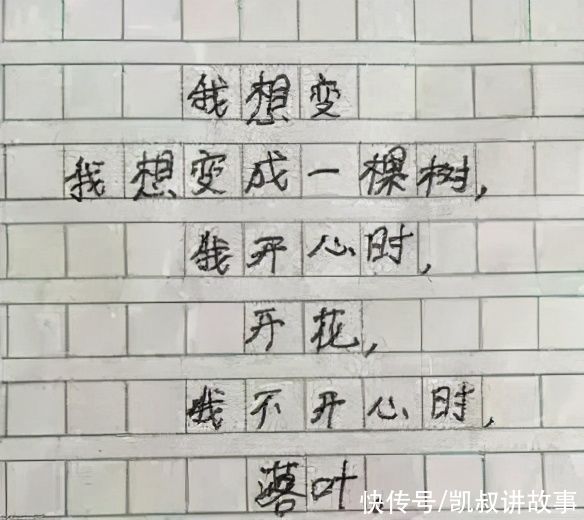 我想变
我想变成一棵树，
我开心时，
开花，
我不开心时，
落叶
快传号/凯叔讲故事